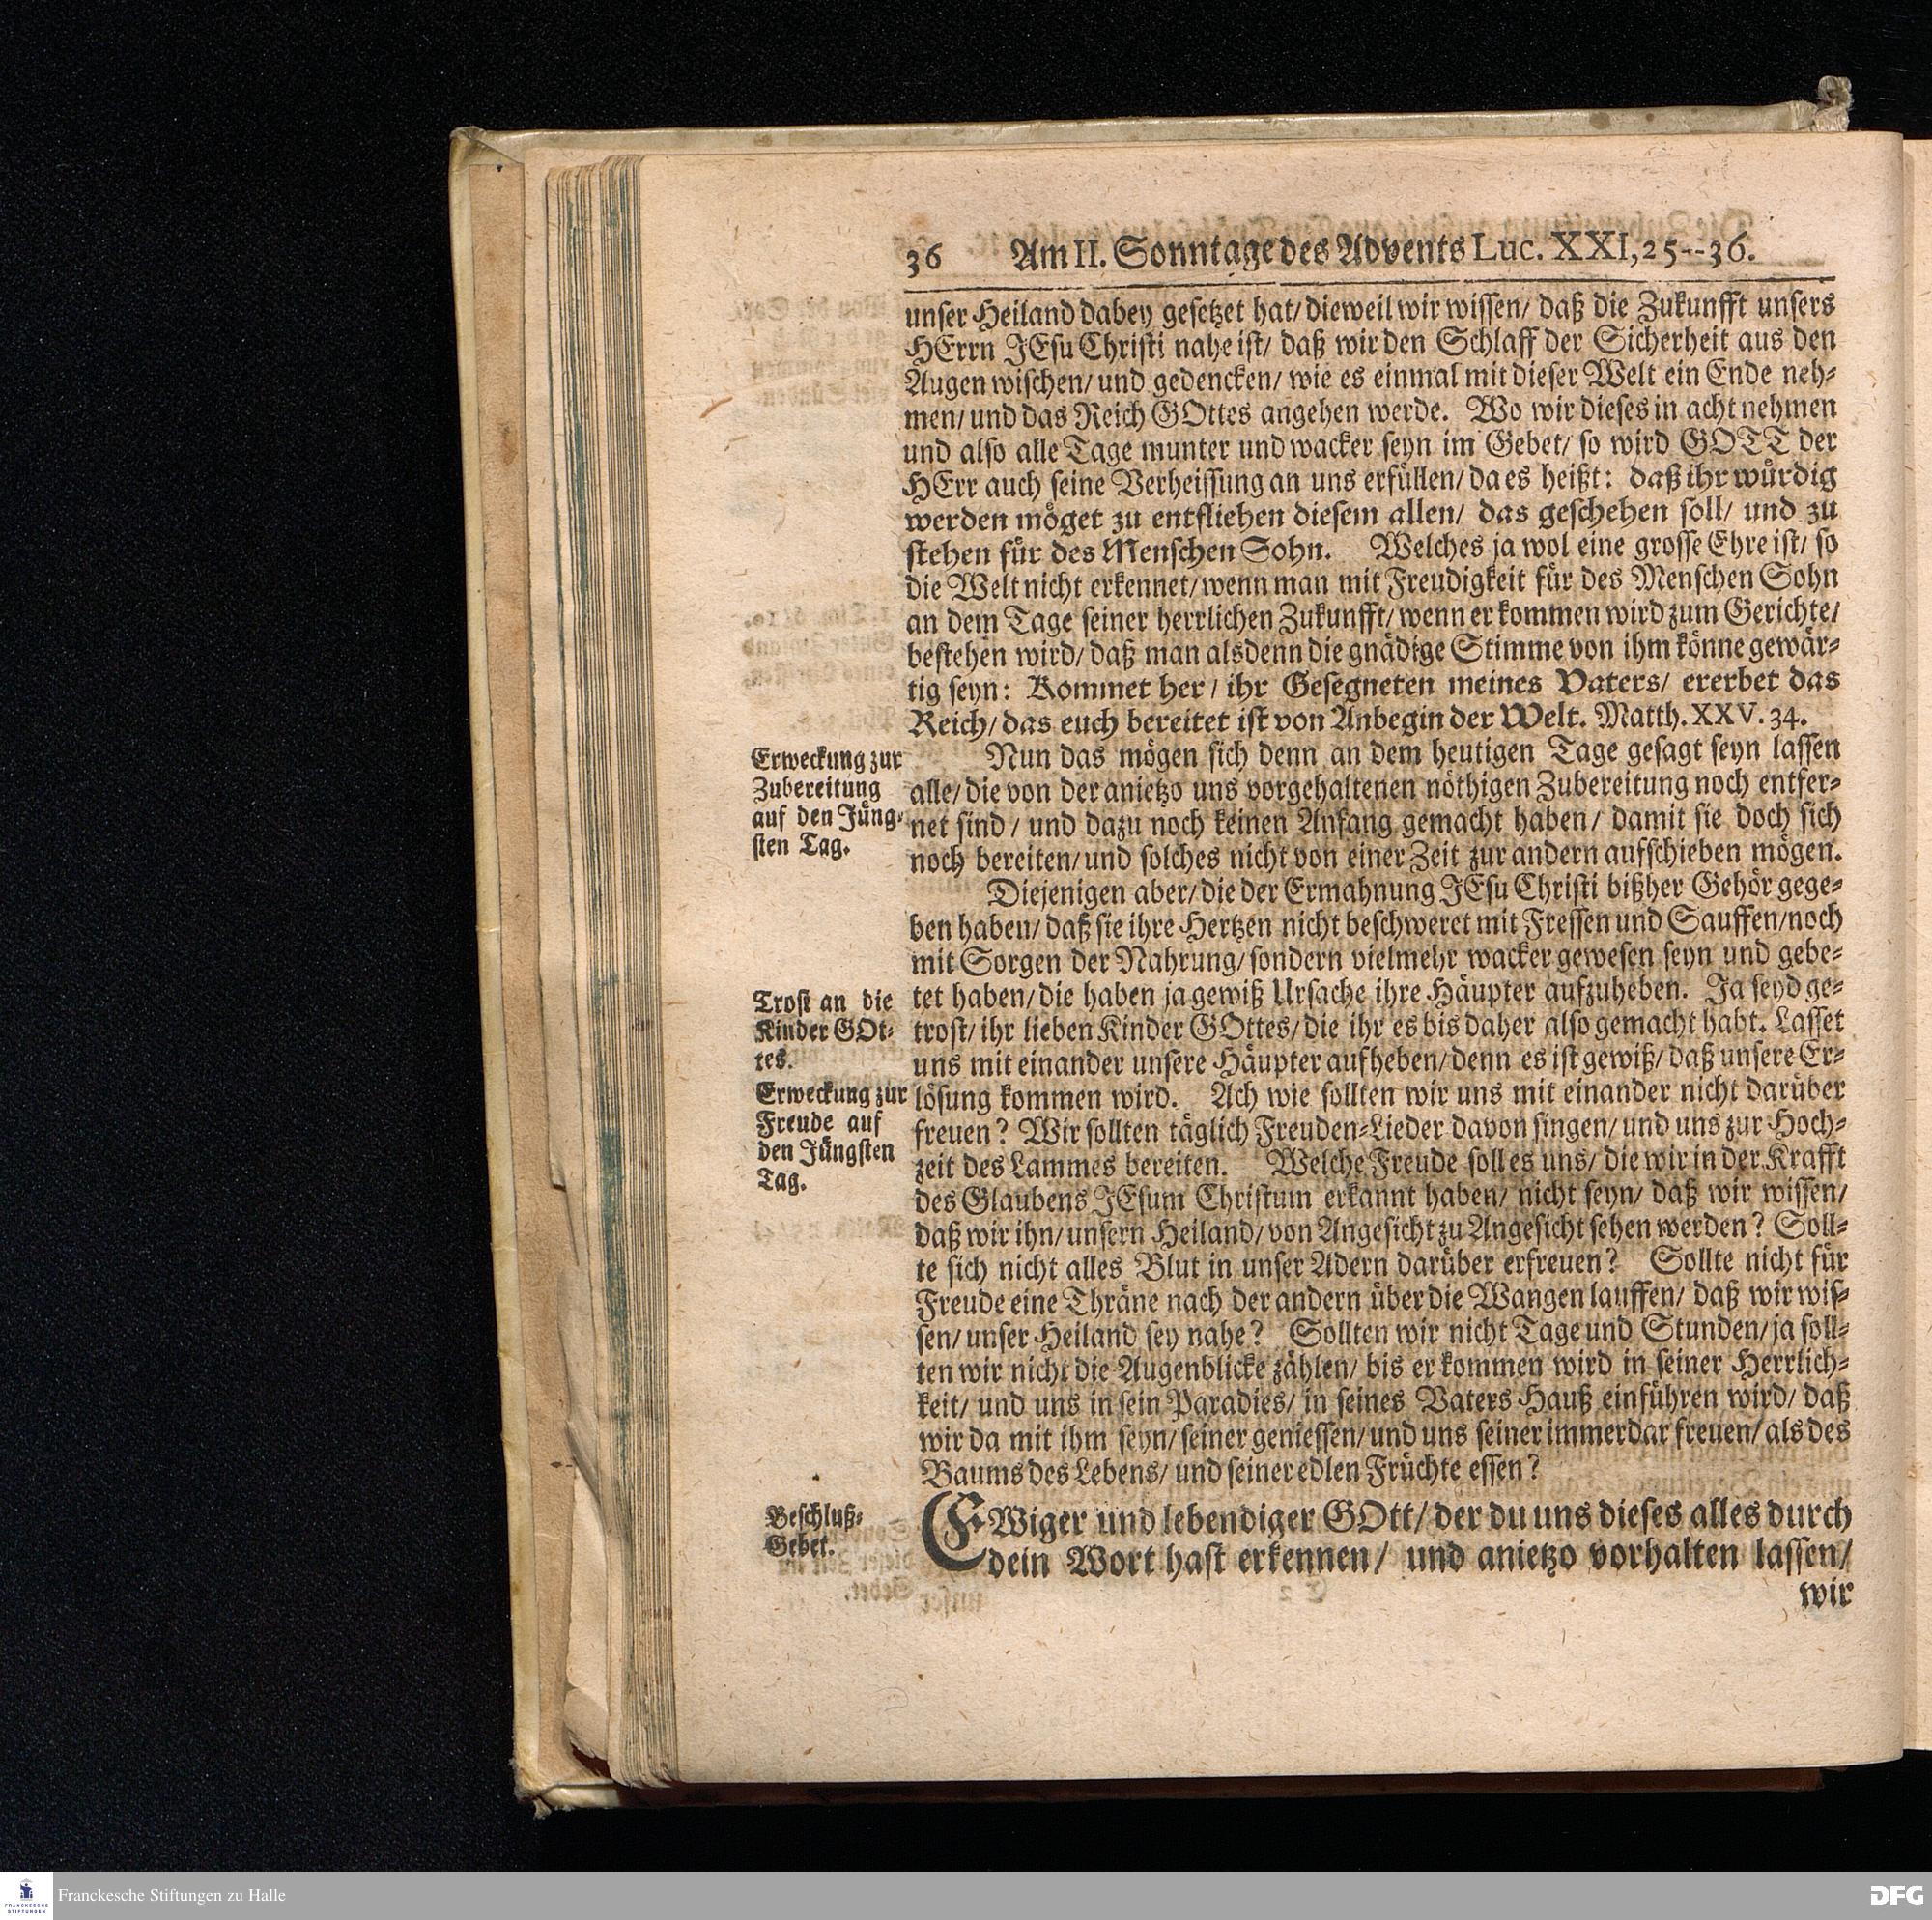 36 Am II. Sonntage des Advents Luc. XXI, 25--36.
unser Heiland dabey gesetzet hat/ dieweil wir wissen/ daß die Zukunfft unsers
HErrn JEsu Christi nahe ist/ daß wir den Schlaff der Sicherheit aus den
Augen wischen/ und gedencken/ wie es einmal mit dieser Welt ein Ende neh-
men/ und das Reich GOttes angehen werde. Wo wir dieses in acht nehmen
und also alle Tage munter und wacker seyn im Gebet/ so wird GOTT der
HErr auch seine Verheissung an uns erfüllen/ da es heißt: daß ihr würdig
werden möget zu entfliehen diesem allen/ das geschehen soll/ und zu
stehen für des Menschen Sohn. Welches ja wol eine grosse Ehre ist/ so
die Welt nicht erkennet/ wenn man mit Freudigkeit für des Menschen Sohn
an dem Tage seiner herrlichen Zukunfft/ wenn er kommen wird zum Gerichte/
bestehen wird/ daß man alsdenn die gnädige Stimme von ihm könne gewär-
tig seyn: Kommet her/ ihr Gesegneten meines Vaters/ ererbet das
Reich/ das euch bereitet ist von Anbegin der Welt. Matth. XXV. 34.
Erweckung zur
Zubereitung
auf den Jüng-
sten Tag.
Nun das mögen sich denn an dem heutigen Tage gesagt seyn lassen
alle/ die von der anietzo uns vorgehaltenen nöthigen Zubereitung noch entfer-
net sind/ und dazu noch keinen Anfang gemacht haben/ damit sie doch sich
noch bereiten/ und solches nicht von einer Zeit zur andern aufschieben mögen.
Diejenigen aber/ die der Ermahnung JEsu Christi bißher Gehör gege-
ben haben/ daß sie ihre Hertzen nicht beschweret mit Fressen und Sauffen/ noch
mit Sorgen der Nahrung/ sondern vielmehr wacker gewesen seyn und gebe-
Trost an die
Kinder GOt-
tes.
tet haben/ die haben ja gewiß Ursache ihre Häupter aufzuheben. Ja seyd ge-
trost/ ihr lieben Kinder GOttes/ die ihr es bis daher also gemacht habt. Lasset
uns mit einander unsere Häupter aufheben/ denn es ist gewiß/ daß unsere Er-
Erweckung zur
Freude auf
den Jüngsten
Tag.
lösung kommen wird. Ach wie sollten wir uns mit einander nicht darüber
freuen? Wir sollten täglich Freuden-Lieder davon singen/ und uns zur Hoch-
zeit des Lammes bereiten. Welche Freude soll es uns/ die wir in der Krafft
des Glaubens JEsum Christum erkannt haben/ nicht seyn/ daß wir wissen/
daß wir ihn/ unsern Heiland/ von Angesicht zu Angesicht sehen werden? Soll-
te sich nicht alles Blut in unser Adern darüber erfreuen? Sollte nicht für
Freude eine Thräne nach der andern über die Wangen lauffen/ daß wir wis-
sen/ unser Heiland sey nahe? Sollten wir nicht Tage und Stunden/ ja soll-
ten wir nicht die Augenblicke zählen/ bis er kommen wird in seiner Herrlich-
keit/ und uns in sein Paradies/ in seines Vaters Hauß einführen wird/ daß
wir da mit ihm seyn/ seiner geniessen/ und uns seiner immerdar freuen/ als des
Baums des Lebens/ und seiner edlen Früchte essen?
Beschluß-
Gebet.
EWiger und lebendiger GOtt/ der du uns dieses alles durch
dein Wort hast erkennen/ und anietzo vorhalten lassen/
wir
FRANCKESCHE
STIFTUNGEN
Franckesche Stiftungen zu Halle
DFG